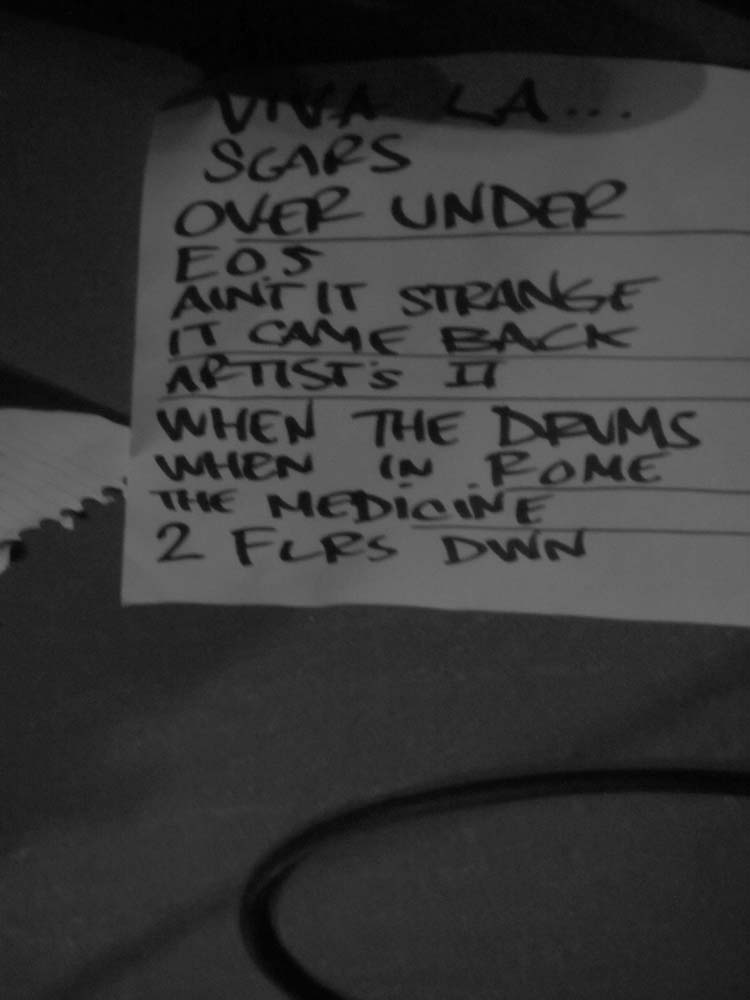 VIVA LA...
SCARS
OVER UNDER
E.O.S
AINT IT STRANGE
IT CAME BACK
ARTIST'S II
WHEN THE DRUMS
WHEN IN ROME
THE MEDICINE
2 FLRS DWN